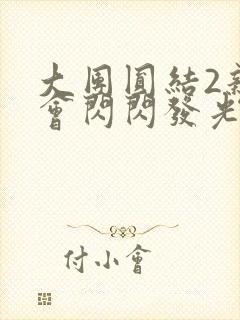 大團圓結2
會閃閃發光
付小會